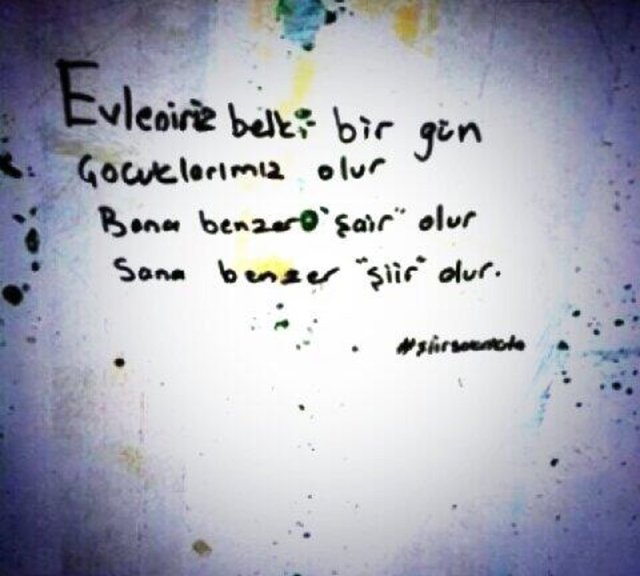 Evleniriz belki bir gün
Çocuklarımız olur
Bana benzer "şair" olur
Sana benzer "şiir" olur.
#şiirsokakta